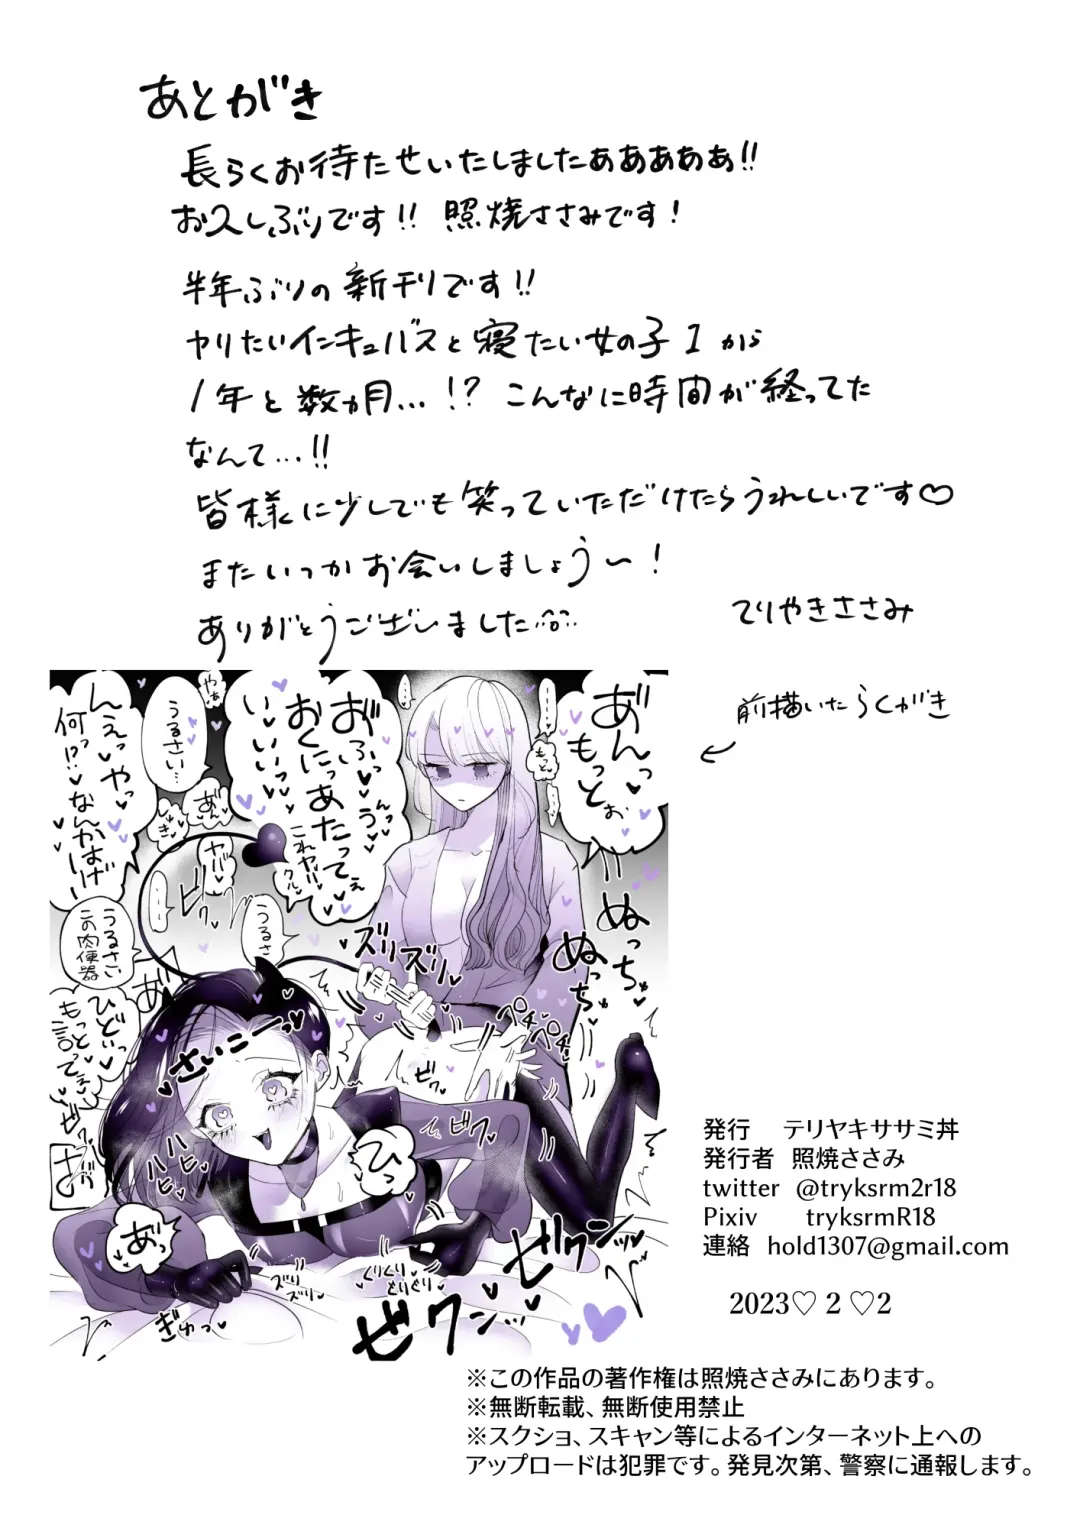 あとがき
長らくお待たせいたしましたあああああ!!
お久しぶりです!! 照焼ささみです!
半年ぶりの新刊です!!
ヤりたいインキュバスと寝たい女の子1から
1年と数ヵ月…!? こんなに時間が経ってた
なんて…!!
皆様に少しでも笑っていただけたらうれしいです♡
またいつかお会いしましょう〜!
ありがとうございました
てりやきささみ
前描いたらくがき
あんっ
もっとぉ
もっと
おふっ♥うっ♥
おくにっあたってぇ
いいいっ♥
これヤバ
うるさい…
やぁ
んえっやっ♥
何っ!?♥なんかはげ
しぃ
あ゛ん
ヤバ
ビクッ
うるさ
うるさい
この肉便器
ひどいっ♥
もっと言ってぇ
さいこーっ♥
ズリズリ♥
ぬっちゅ
ぬっちゅ
ペチペチ
ビクッ
ハヒハヒ
お゛
あっ
ひっ
ぎゅっ
ズリズリ
ぐりぐりとりぐり
ゼクンッ
ゼクンッ
発行 テリヤキササミ丼
発行者 照焼ささみ
twitter @tryksrm2r18
Pixiv tryksrmR18
連絡 hold1307@gmail.com
2023♡2♡2
※この作品の著作権は照焼ささみにあります。
※無断転載、無断使用禁止
※スクショ、スキャン等によるインターネット上への
アップロードは犯罪です。発見次第、警察に通報します。